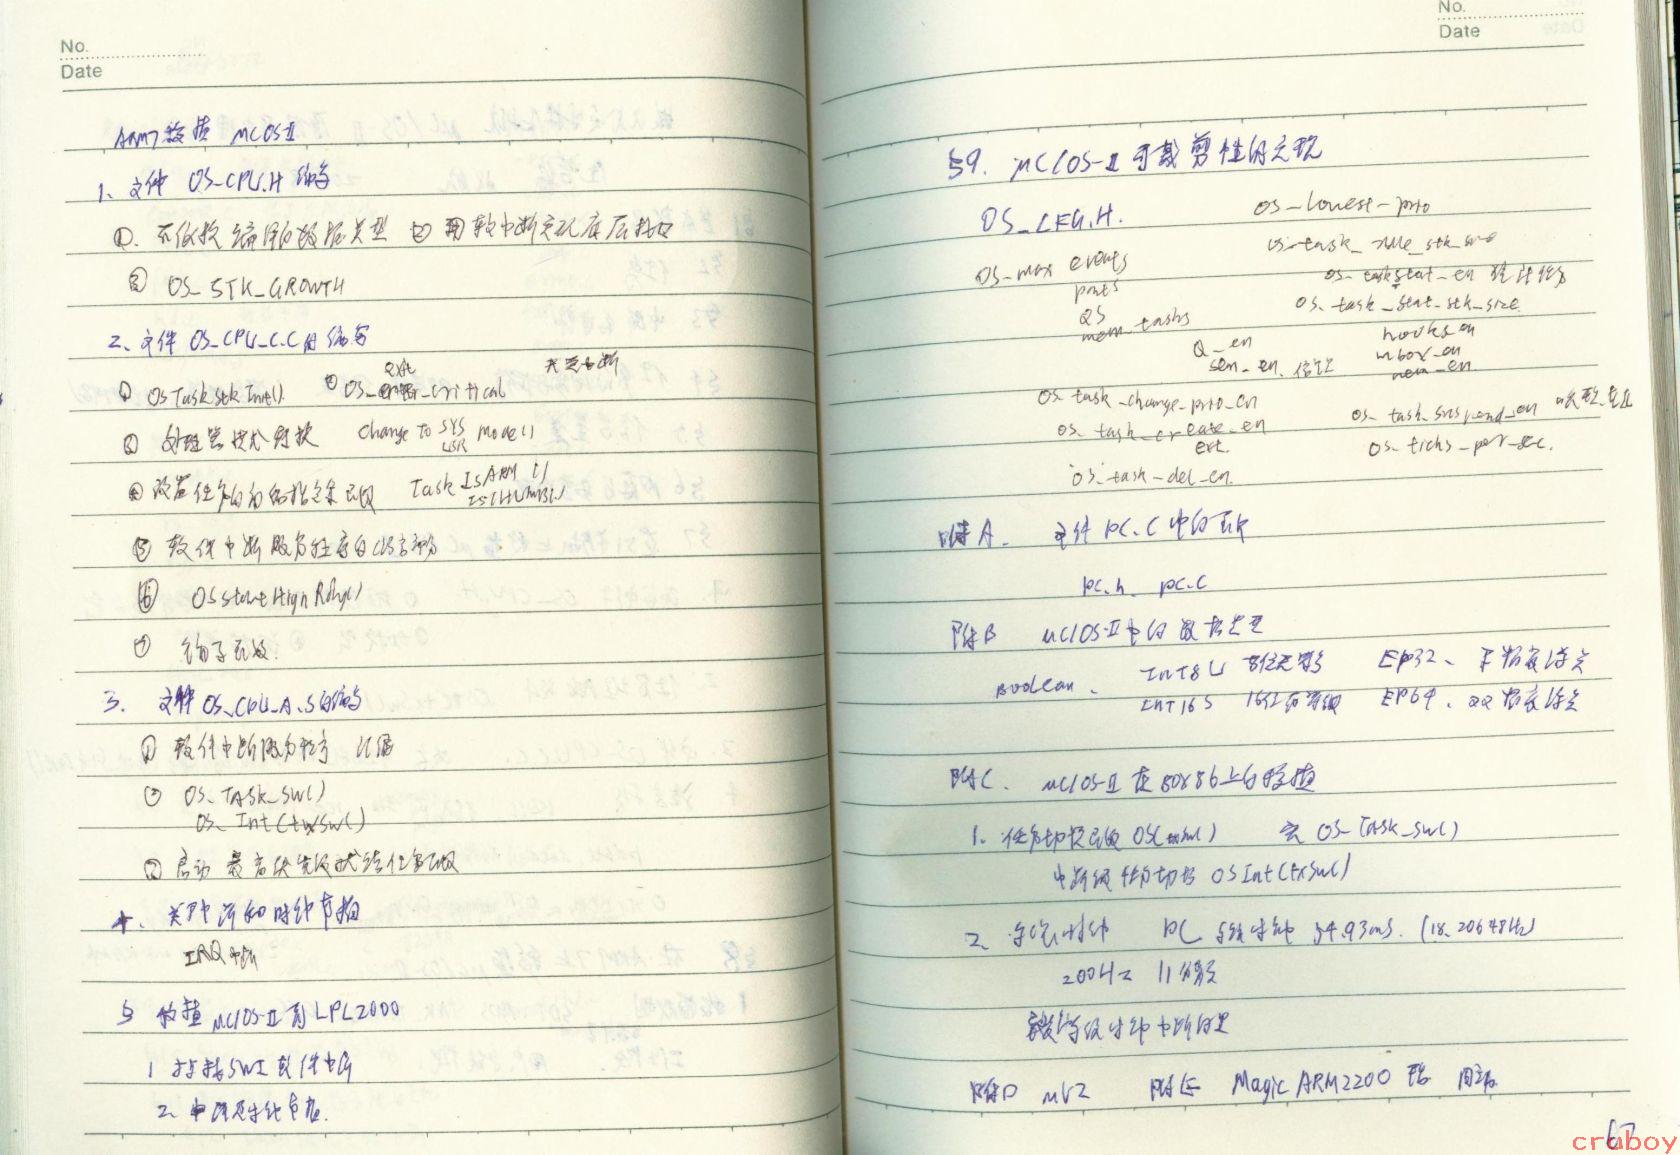 No.
Date
ARM7 移植 μCOSII
1、文件 OS_CPU.H 编写
①. 不依赖编译的数据类型 ② 用软中断实现底层接口
③ OS_STK_GROWTH
2、文件 OS_CPU_C.C 的编写
① OSTaskStkInit() ② OS_enter_critical 关중断
exit
③ 处理器模式转换 Change To SYS Mode()
USR
④ 设置任务的初始指令集函数 Task IsARM ()
IsTHUMB()
⑤ 软件中断服务程序的C语言部分
⑥ OSStartHighRdy()
⑦ 钩子函数
3. 文件 OS_CPU_A.S的编写
① 软件中断服务程序
② OS_TASK_SW()
OS_IntCtxSw()
③ 启动最高优先级就绪任务函数
4. 关中断和时钟节拍
IRQ 中断
5 移植 μC/OS-II 到 LPC2000
1 挂接SWI软件中断
2、中断及时钟节拍.
No.
Date
§9. μC/OS-II 可裁剪性的实现
OS_CFG.H.
OS_lowest_prio
OS_max events
OS_task_idle_stk_size
parts
OS_task_stat_en 统计任务
QS
OS_task_stat_stk_size
mem tasks
Q_en
hooks_en
sem_en. 信号量
mbox_en
mem_en
OS_task_change_prio_en
OS_task_suspend_en
OS_task_create_en
ext.
OS_ticks_per_sec.
OS_task_del_en.
附A. 文件PC.C中的函数
PC.h PC.C
附B μC/OS-II中的数据类型
Boolean. INT8U 8位无符号 FP32、单精度浮点
INT16S 16位有符号 FP64、双精度浮点
附C. μC/OS-II在80x86上的移植
1. 任务切换函数 OSCtxSw() 宏 OS_TASK_SW()
中断级任务切换 OSIntCtxSw()
2. PC 系统时钟 54.93ms. (18.20648Hz)
200Hz 11分频
附D μV2 附E MagicARM2200
67
cruboy